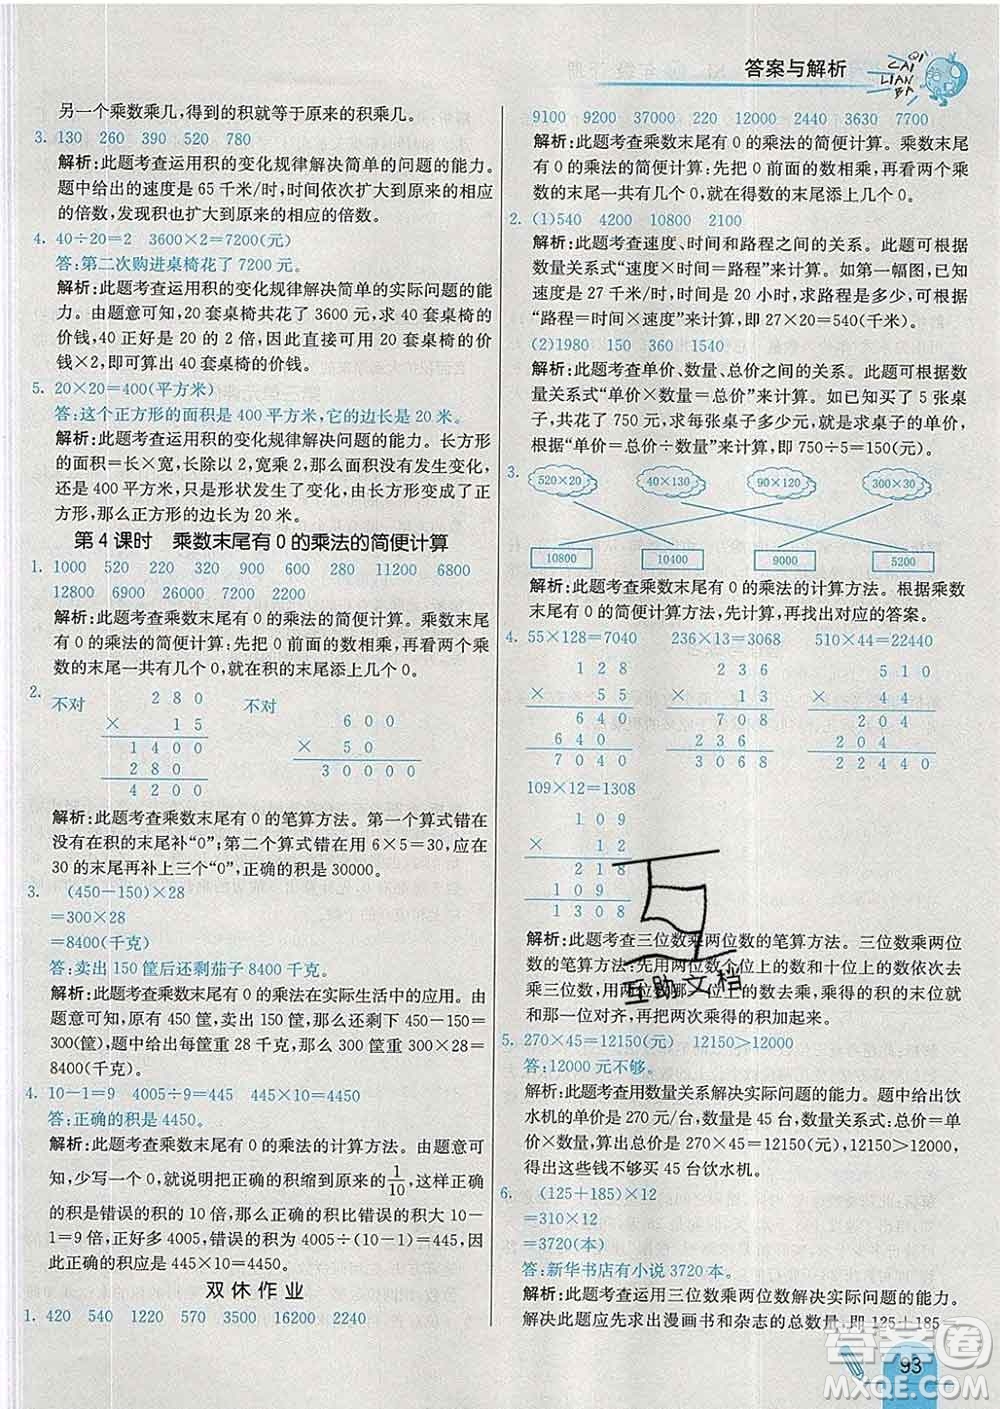 QI
CAI
LIAN
BA
答案与解析
另一个乘数乘几，得到的积就等于原来的积乘几。
3. 130 260 390 520 780
解析:此题考查运用积的变化规律解决简单的问题的能力。
题中给出的速度是 65 千米/时,时间依次扩大到原来的相应
的倍数，发现积也扩大到原来的相应的倍数。
4. 40÷20=2 3600×2=7200(元)
答:第二次购进桌椅花了 7200 元。
解析:此题考查运用积的变化规律解决简单的实际问题的能
力。由题意可知，20 套桌椅共花了 3600 元，求 40 套桌椅的
价钱，40 正好是 20 的 2 倍，因此直接可用 20 套桌椅的价
钱×2，即可算出 40 套桌椅的价钱。
5. 20×20=400(平方米)
答:这个正方形的面积是 400 平方米,它的边长是 20 米。
解析:此题考查运用积的变化规律解决问题的能力。长方形
的面积=长×宽,长除以 2,宽乘 2,那么面积没有发生变化,
还是 400 平方米,只是形状发生了变化,由长方形变成了正
方形，那么正方形的边长为 20 米。
第 4 课时 乘数末尾有 0 的乘法的简便计算
1. 1000 520 220 320 900 280 11200 6800
12800 6900 26000 7200 2200
解析:此题考查乘数末尾有 0 的简便计算。乘数末尾
有 0 的乘法的简便计算:先把 0 前面的数相乘,再看两个乘
数的末尾一共有几个 0,就在积的末尾添上几个 0。
2. 不对 280 不对 600
× 15 × 50
1400 30000
280
4200
解析:此题考查乘数末尾有 0 的笔算方法。第一个算式错在
没有在积的末尾补“0”;第二个算式错在用 6×5=30,应在
30 的末尾再补上三个“0”,正确的积是 30000。
3. (450-150)×28
=300×28
=8400(千克)
答:卖出 150 筐后还剩茄子 8400 千克。
解析:此题考查乘数末尾有 0 的乘法在实际生活中的应用。由
题意可知，原有 450 筐，卖出 150 筐，那么还剩下 450-150=
300(筐),题中给出每筐重 28 千克,300 筐共重 300×28=
8400(千克)。
4. 10-1=9 4005÷9=445 445×10=4450
答:正确的积是 4450。
解析:此题考查乘数末尾有 0 的乘法的计算方法。由题意可
知,少写一个 0,就说明把正确的积缩到原来的1/10,正确的积
是错误的积的 10 倍,那么正确的积比错误的积大 10-
1=9 倍,正好多 4005,错误的积为 4005÷(10-1)=445,
正确的积应是 445×10=4450。
双休作业
1. 420 540 1220 570 3500 16000 2240
9100 9200 37000 220 12000 2440 3630 7700
解析:此题考查乘数末尾有 0 的乘法的简便计算。乘数末尾
有 0 的乘法的简便计算:先把 0 前面的数相乘,再看两个乘
数的末尾一共有几个 0,就在得数的末尾添上几个 0。
2. (1)540 4200 10800 2100
解析:此题考查速度、时间和路程之间的关系。此题可根据
数量关系式“速度×时间=路程”来计算。如第一幅图,已知
速度是 27 千米/时,时间是 20 小时,求路程是多少,可根据
“路程=时间×速度”来计算,即 27×20=540(千米)。
(2)1980 150 360 1540
解析:此题考查单价、数量、总价之间的关系。此题可根据数
量关系式“单价×数量=总价”来计算。如已知买了 5 张桌
子,共花了 750 元,求每张桌子多少元,就是求桌子的单价,可
根据“单价=总价÷数量”来计算,即 750÷5=150(元)。
3. 520×20 40×130 90×120 300×30
10800 10400 9000 5200
解析:此题考查乘数末尾有 0 的乘法的计算方法。根据乘数
末尾有 0 的简便计算方法,先计算,再找出对应的答案。
4. 55×128=7040 236×13=3068 510×44=22440
128 236 510
× 55 × 13 × 44
640 708 204
640 236 204
7040 3068 22440
109×12=1308
109
× 12
218
109
1308
解析:此题考查三位数乘两位数的笔算方法。三位数乘两位
数的计算方法:先用两位数个位上的数和十位上的数依次去
乘三位数,用两位数哪一位上的数去乘,乘得的积的末位就
和那一位对齐,再把两次乘得的积加起来。
互助文档
5. 270×45=12150(元) 12150>12000
答:12000 元不够。
解析:此题考查用数量关系解决实际问题的能力。题中给出饮
水机的单价是 270 元/台,数量是 45 台,数量关系式:总价=单
价×数量,求出总价是 270×45=12150(元),12150>12000,
得出这些钱不够买 45 台饮水机。
6. (125+185)×12
=310×12
=3720(本)
答:新华书店有小说 3720 本。
解析:此题考查运用三位数乘两位数解决实际问题的能力。
解决此题应先求出漫画书和杂志的总数量,即 125+185=
93
答案圈
MXQE.COM